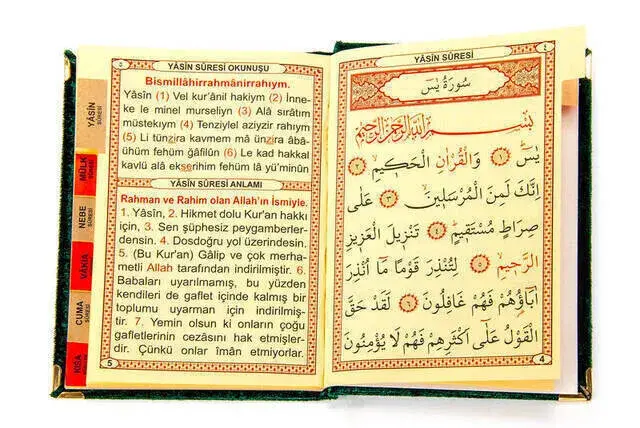 YÂSİN SÛRESİ
٤
سُورَةُ يٰسٓ
بِسْمِ اللّٰهِ الرَّحْمٰنِ الرَّحِيمِ
يٰسٓ ﴿١﴾ وَالْقُرْاٰنِ الْحَكِيمِ ﴿٢﴾
اِنَّكَ لَمِنَ الْمُرْسَلِينَ ﴿٣﴾ عَلٰى
صِرَاطٍ مُسْتَقِيمٍ ﴿٤﴾ تَنْزِيلَ الْعَزِيزِ
الرَّحِيمِ ﴿٥﴾ لِتُنْذِرَ قَوْمًا مَٓا اُنْذِرَ
اٰبَٓاؤُ۬هُمْ فَهُمْ غَافِلُونَ ﴿٦﴾ لَقَدْ حَقَّ
الْقَوْلُ عَلٰٓى اَكْثَرِهِمْ فَهُمْ لَا يُؤْمِنُونَ
4
٥
YÂSİN SÛRESİ OKUNUŞU
Bismillâhirrahmânirrahıym.
Yâsîn (1) Vel kur'ânil hakiym (2) İnne-
ke le minel murseliyn (3) Alâ sırâtım
müstekıym (4) Tenziylel aziyzir rahıym
(5) Li tünzira kavmem mâ ünzira âbâ-
ühüm fehüm ğâfilûn (6) Le kad hakkal
kavlü alâ ekserihim fehüm lâ yü'minûn
YÂSİN SÛRESİ ANLAMI
Rahman ve Rahim olan Allah'ın İsmiyle.
1. Yâsîn, 2. Hikmet dolu Kur'an hakkı
için, 3. Sen şüphesiz peygamberler-
densin. 4. Dosdoğru yol üzerindesin.
5. (Bu Kur'an) Gâlip ve çok merha-
metli Allah tarafından indirilmiştir. 6.
Babaları uyarılmamış, bu yüzden
kendileri de gaflet içinde kalmış bir
toplumu uyarman için indirilmiş-
tir. 7. Yemin olsun ki onların çoğu
gafletlerinin cezasını hak etmişler-
dir. Çünkü onlar îmân etmiyorlar.
5
YÂSİN
SÛRESİ
MÜLK
SÛRESİ
NEBE
SÛRESİ
VAKIA
CUMA
SÛRESİ
KISA